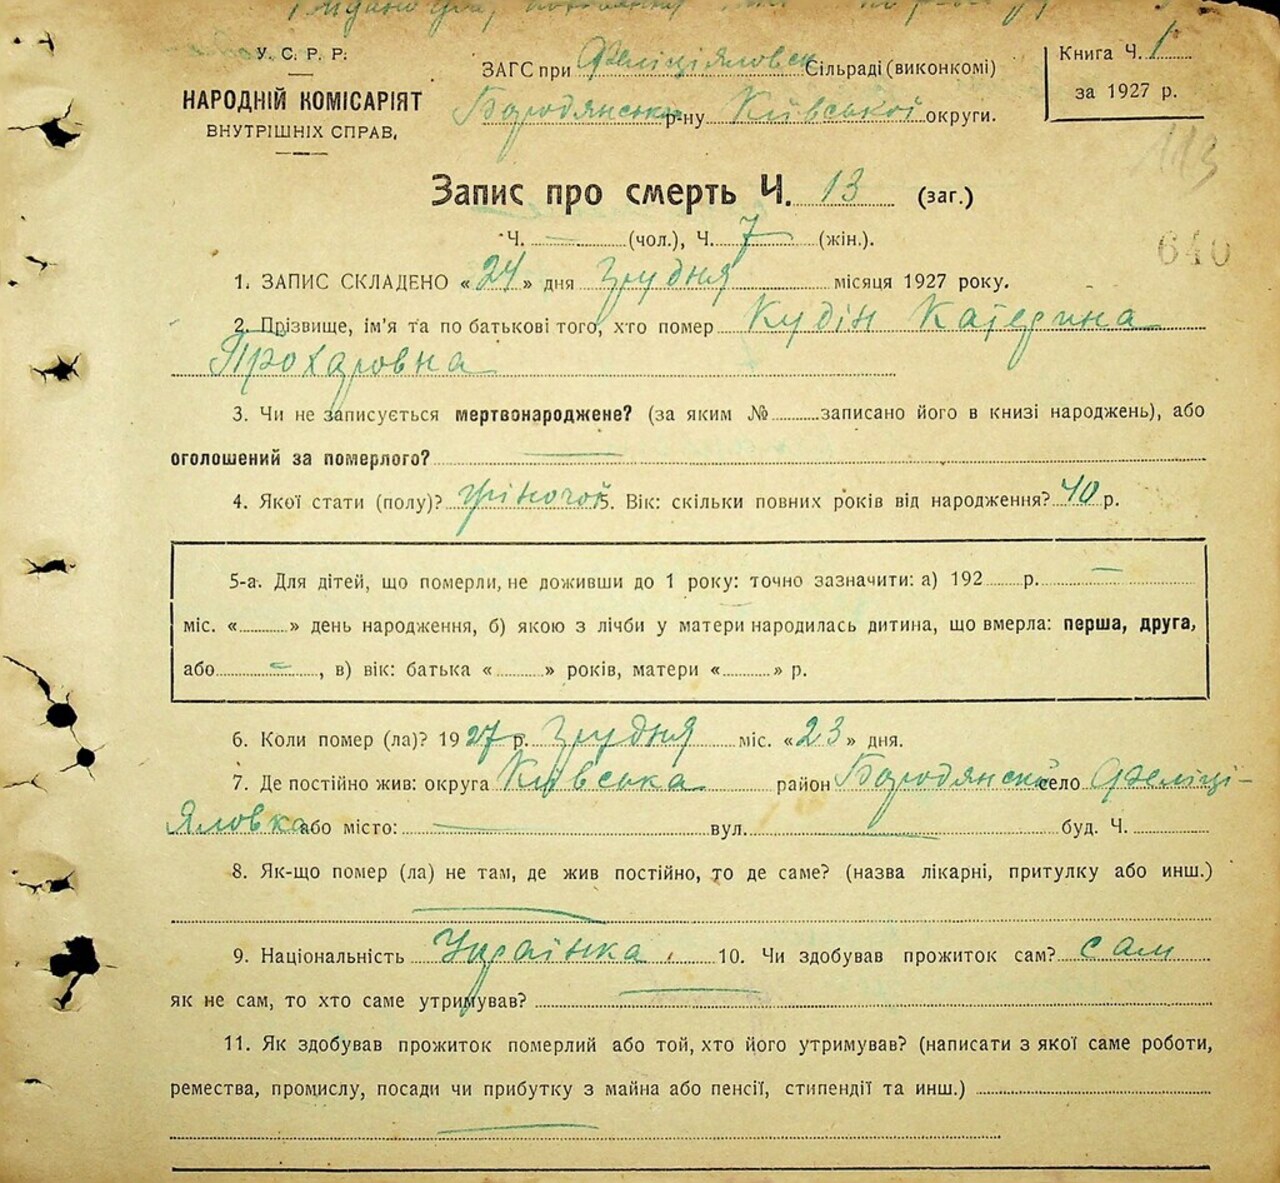 У. С. Р. Р.
НАРОДНІЙ КОМІСАРІЯТ
ВНУТРІШНІХ СПРАВ,
ЗАГС при Феліціяловск Сільраді (виконкомі)
Бородянськ р-ну Київської округи.
Книга Ч. 1
за 1927 р.
113
Запис про смерть Ч. 13 (заг.)
Ч. — (чол.), Ч. 7 (жін.).
640
1. ЗАПИС СКЛАДЕНО «24» дня Грудня місяця 1927 року.
2. Прізвище, ім'я та по батькові того, хто помер Кудін Катерина
Прохаровна
3. Чи не записується мертвонароджене? (за яким № записано його в книзі народжень), або
оголошений за померлого? —
4. Якої стати (полу)? жіночой 5. Вік: скільки повних років від народження? 40 р.
5-а. Для дітей, що померли, не доживши до 1 року: точно зазначити: а) 192 р. —
міс. « » день народження, б) якою з лічби у матери народилась дитина, що вмерла: перша, друга,
або — , в) вік: батька « » років, матери « » р.
6. Коли помер (ла)? 1927 р. Грудня міс. «23» дня.
7. Де постійно жив: округа Київська район Бородянск село Феліці-
яловка або місто: — вул. — буд. Ч.
8. Як-що помер (ла) не там, де жив постійно, то де саме? (назва лікарні, притулку або инш.)
—
9. Національність Українка. 10. Чи здобував прожиток сам? сам
як не сам, то хто саме утримував? —
11. Як здобував прожиток померлий або той, хто його утримував? (написати з якої саме роботи,
ремества, промислу, посади чи прибутку з майна або пенсії, стипендії та инш.)
—